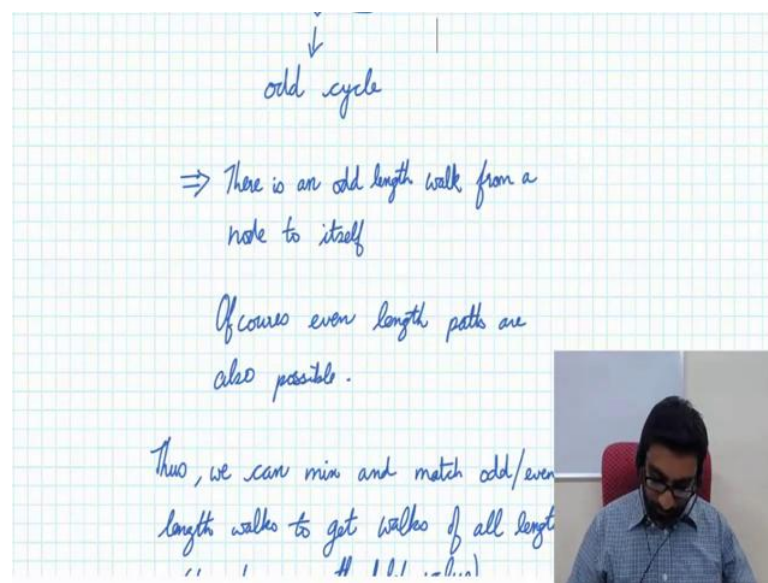 odd cycle
⇒ There is an odd length walk from a
node to itself
Ofcoures even length paths are
also possible.
Thus, we can mix and match odd/even
length walks to get walks of all